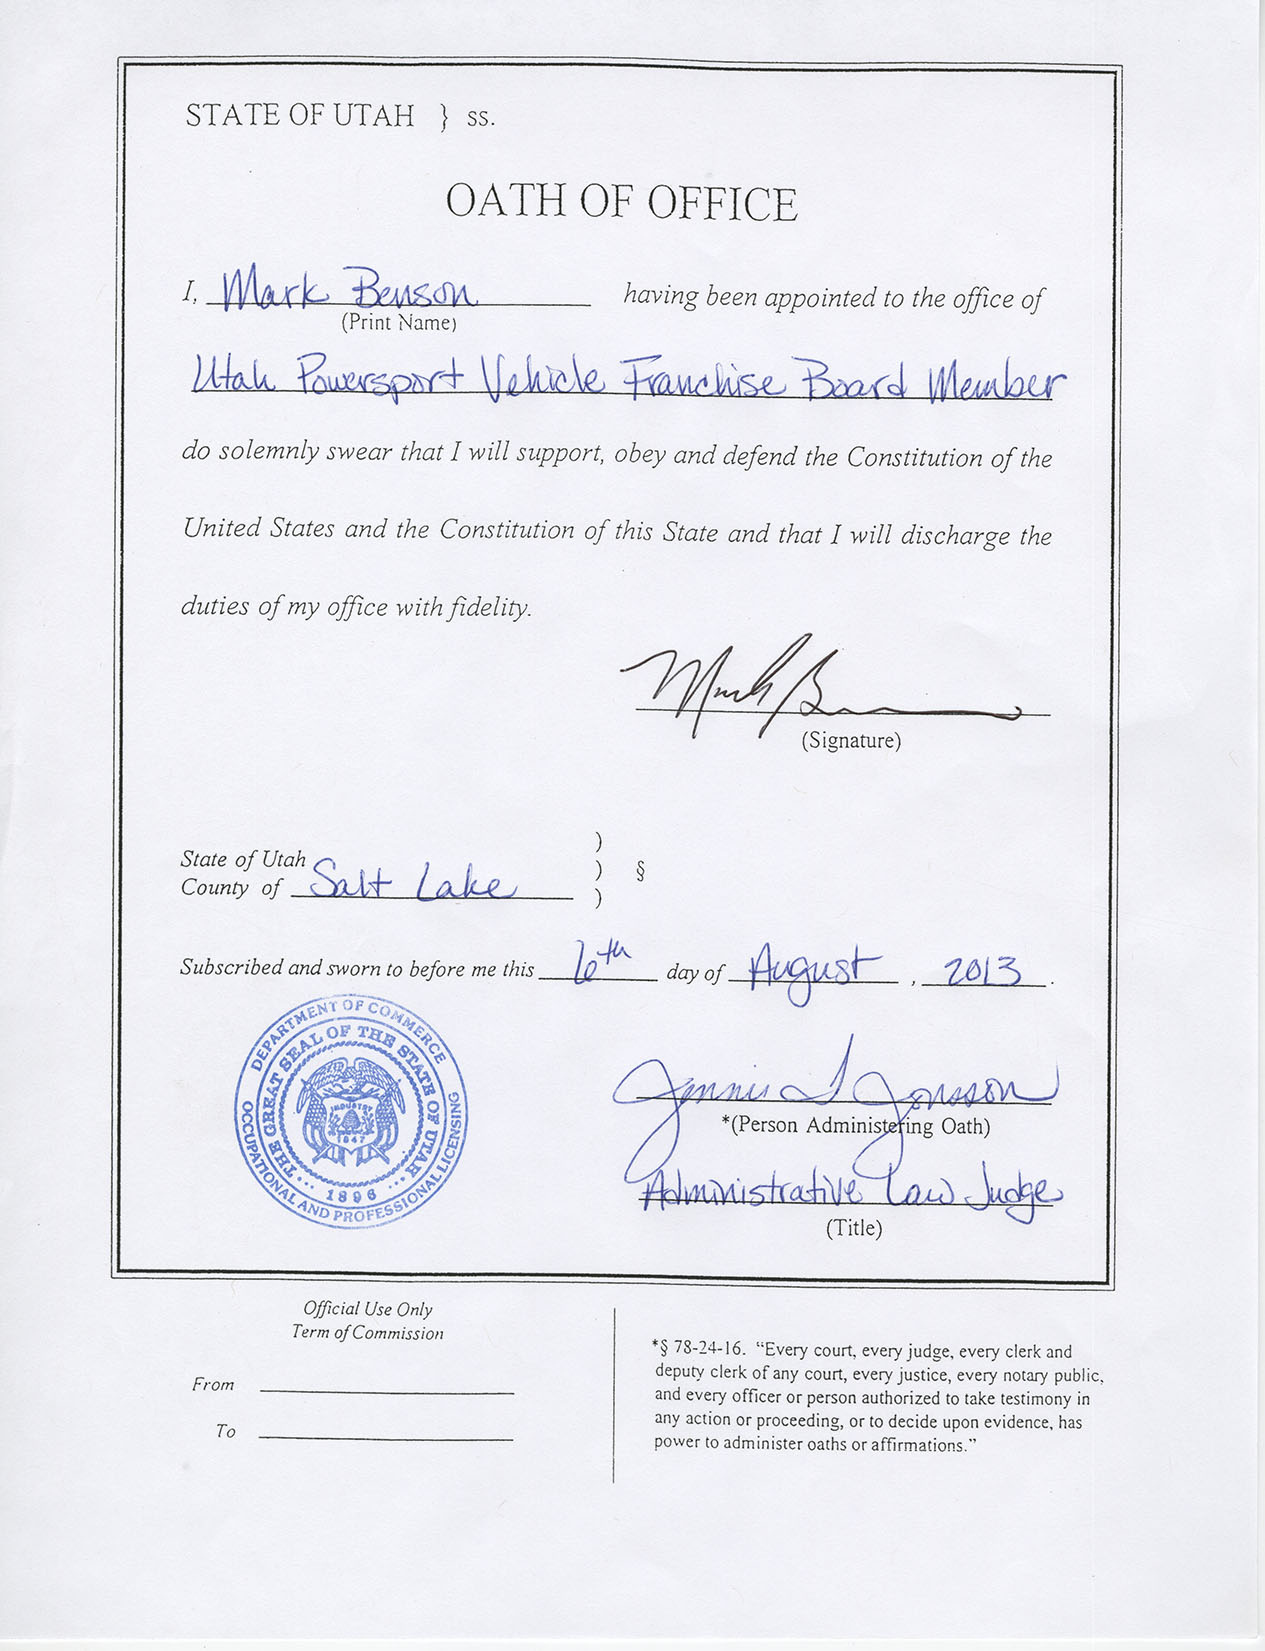 STATE OF UTAH } ss.
OATH OF OFFICE
I, Mark Benson having been appointed to the office of
(Print Name)
Utah Powersport Vehicle Franchise Board Member
do solemnly swear that I will support, obey and defend the Constitution of the
United States and the Constitution of this State and that I will discharge the
duties of my office with fidelity.
(Signature)
State of Utah ) 
County of Salt Lake ) §
)
Subscribed and sworn to before me this 6th day of August, 2013.
DEPARTMENT OF COMMERCE
OCCUPATIONAL AND PROFESSIONAL LICENSING
THE GREAT SEAL OF THE STATE OF UTAH
INDUSTRY
1847
1896
Jennie T Jonsson
*(Person Administering Oath)
Administrative Law Judge
(Title)
Official Use Only
Term of Commission
From
To
*§ 78-24-16. “Every court, every judge, every clerk and
deputy clerk of any court, every justice, every notary public,
and every officer or person authorized to take testimony in
any action or proceeding, or to decide upon evidence, has
power to administer oaths or affirmations.”